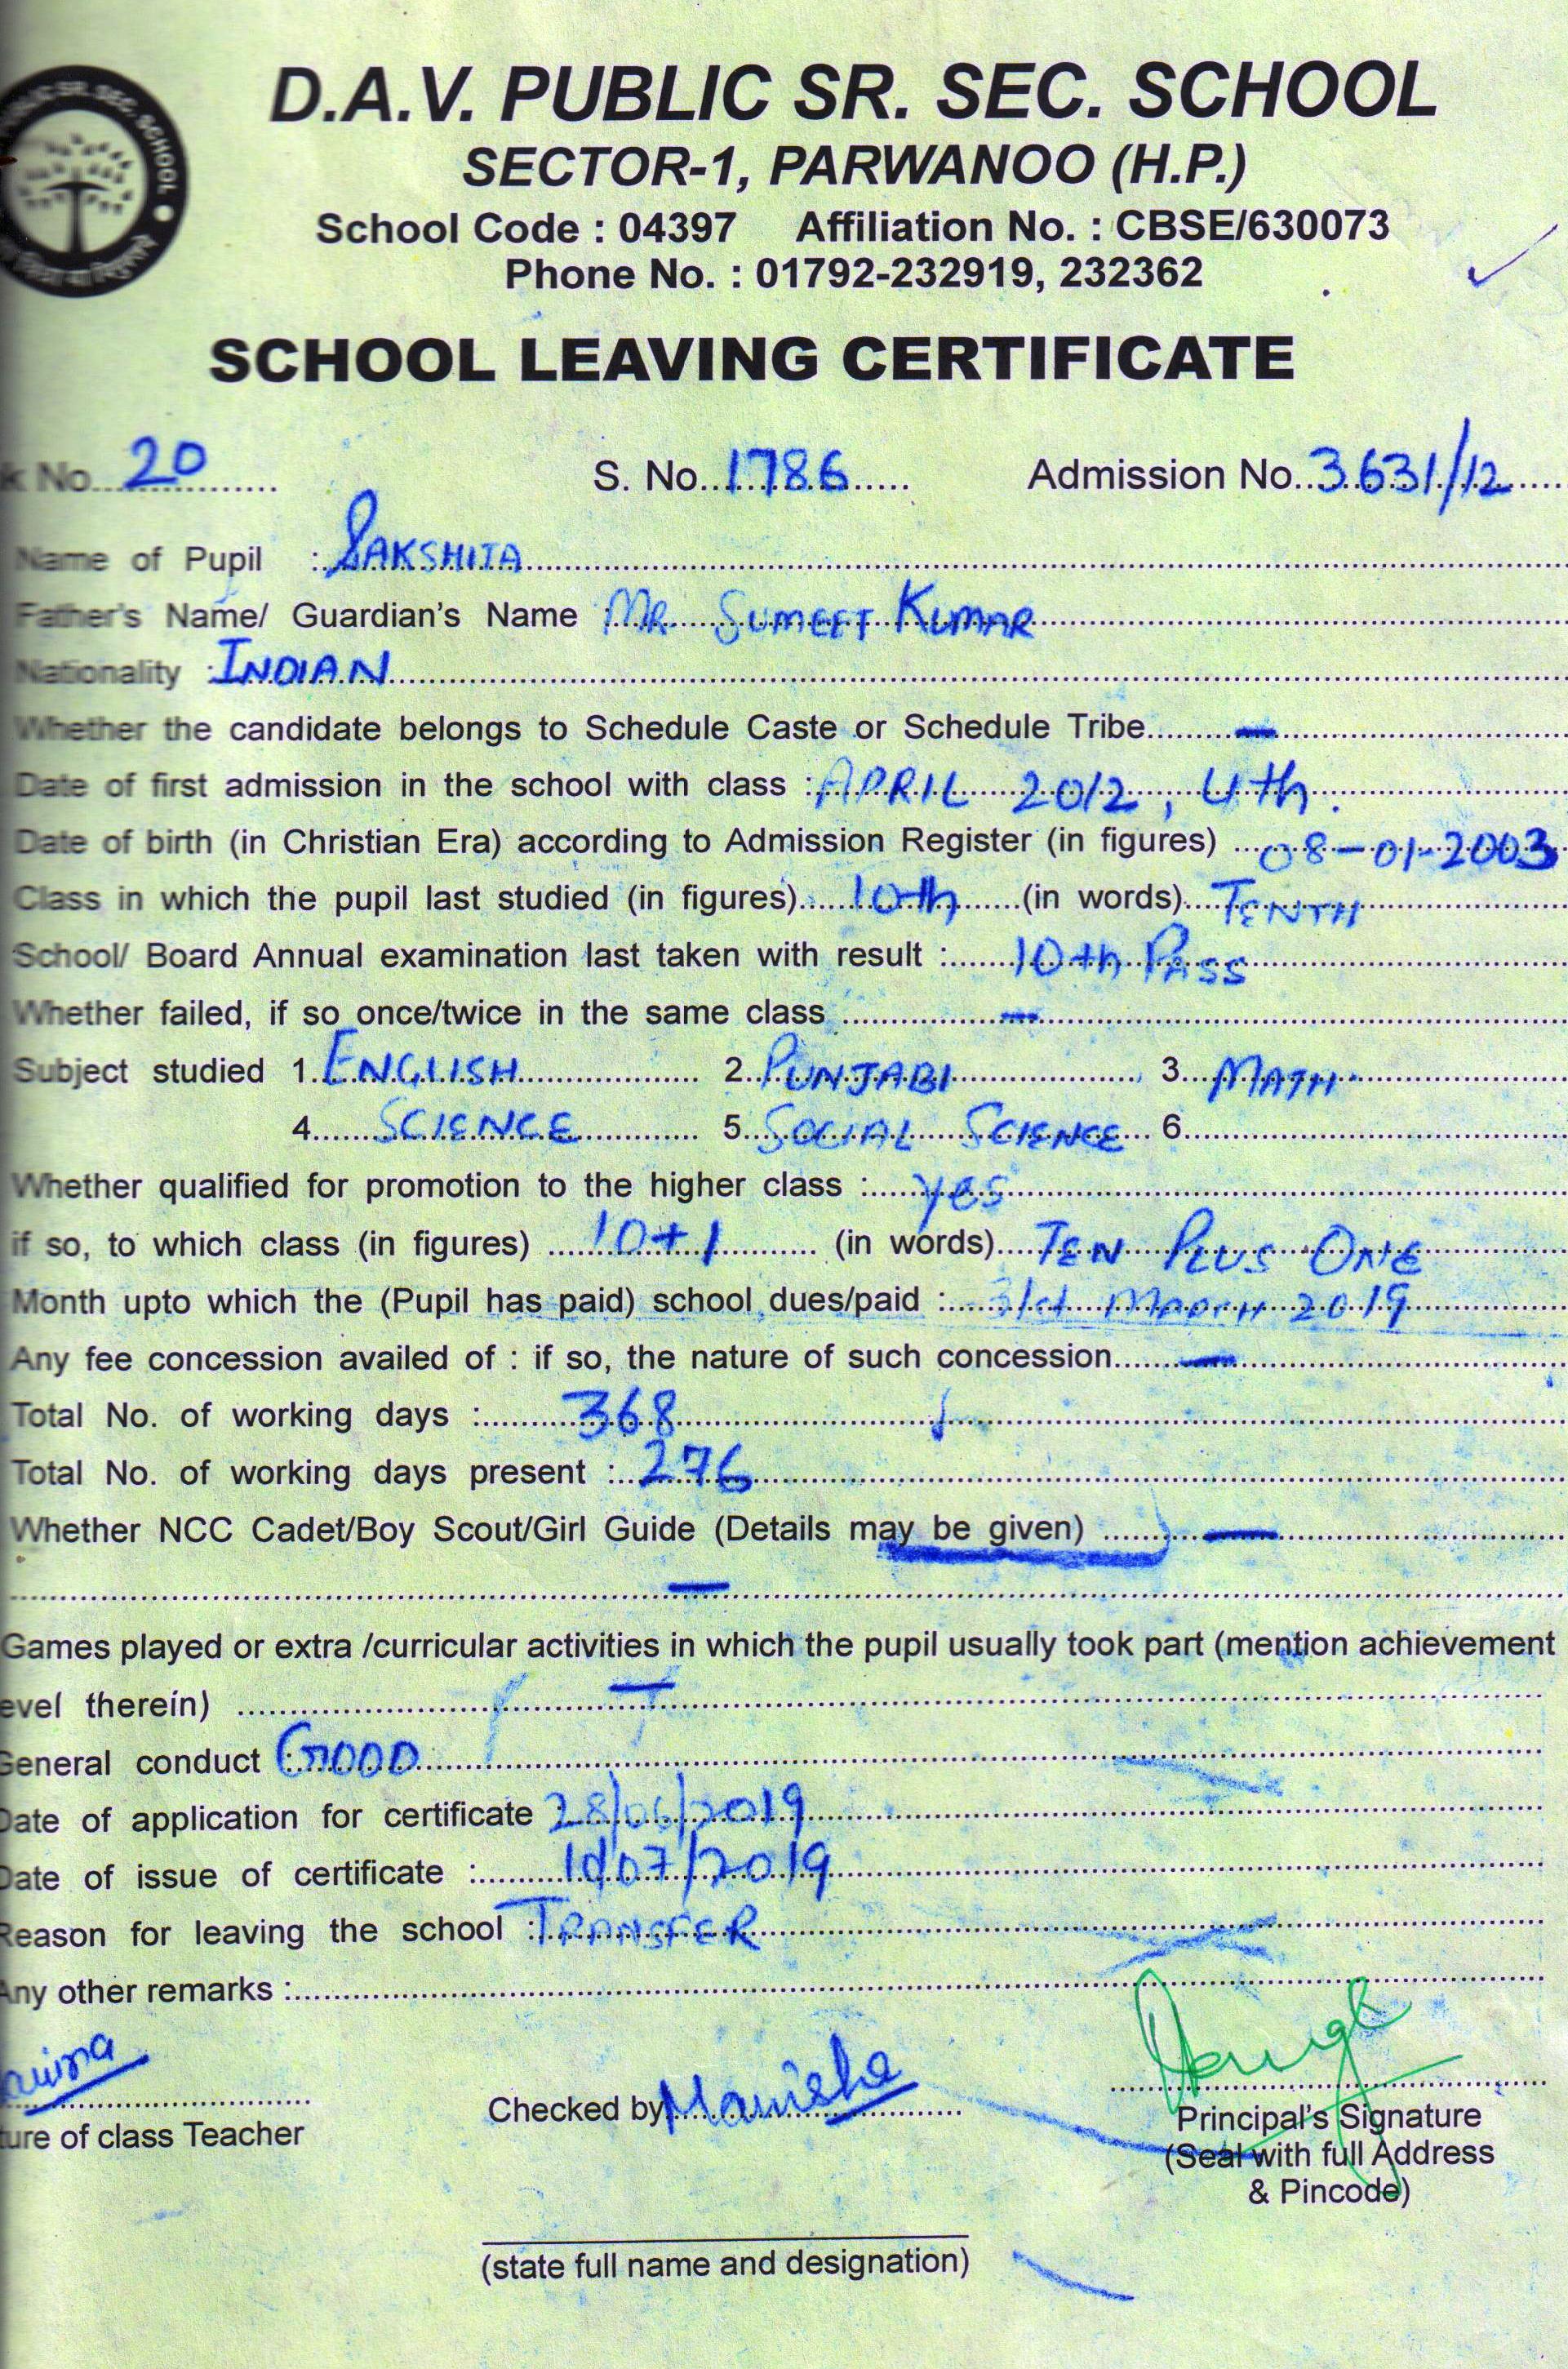 D.A.V. PUBLIC SR. SEC. SCHOOL
SECTOR-1, PARWANOO (H.P.)
School Code : 04397 Affiliation No. : CBSE/630073
Phone No. : 01792-232919, 232362
PUBLIC SR. SEC. SCHOOL
SCHOOL LEAVING CERTIFICATE
k No. 20 S. No. 1786 Admission No. 3631/12
Name of Pupil : SAKSHITA
Father's Name/ Guardian's Name : MR. SUMEET KUMAR
Nationality : INDIAN
Whether the candidate belongs to Schedule Caste or Schedule Tribe —
Date of first admission in the school with class : APRIL 2012, 4th.
Date of birth (in Christian Era) according to Admission Register (in figures) 08-01-2003
Class in which the pupil last studied (in figures) 10th (in words) TENTH
School/ Board Annual examination last taken with result : 10th PASS
Whether failed, if so once/twice in the same class —
Subject studied 1. ENGLISH 2. PUNJABI 3. MATH
4. SCIENCE 5. SOCIAL SCIENCE 6.
Whether qualified for promotion to the higher class : yes
if so, to which class (in figures) 10+1 (in words) TEN PLUS ONE
Month upto which the (Pupil has paid) school dues/paid : 31st MARCH 2019
Any fee concession availed of : if so, the nature of such concession —
Total No. of working days : 368
Total No. of working days present : 276
Whether NCC Cadet/Boy Scout/Girl Guide (Details may be given) —
—
Games played or extra /curricular activities in which the pupil usually took part (mention achievement
evel therein) —
General conduct : GOOD
Date of application for certificate : 28/06/2019
Date of issue of certificate : /07/2019
Reason for leaving the school : TRANSFER
Any other remarks :
Checked by Manisha
ture of class Teacher
Principal's Signature
(Seal with full Address
& Pincode)
(state full name and designation)